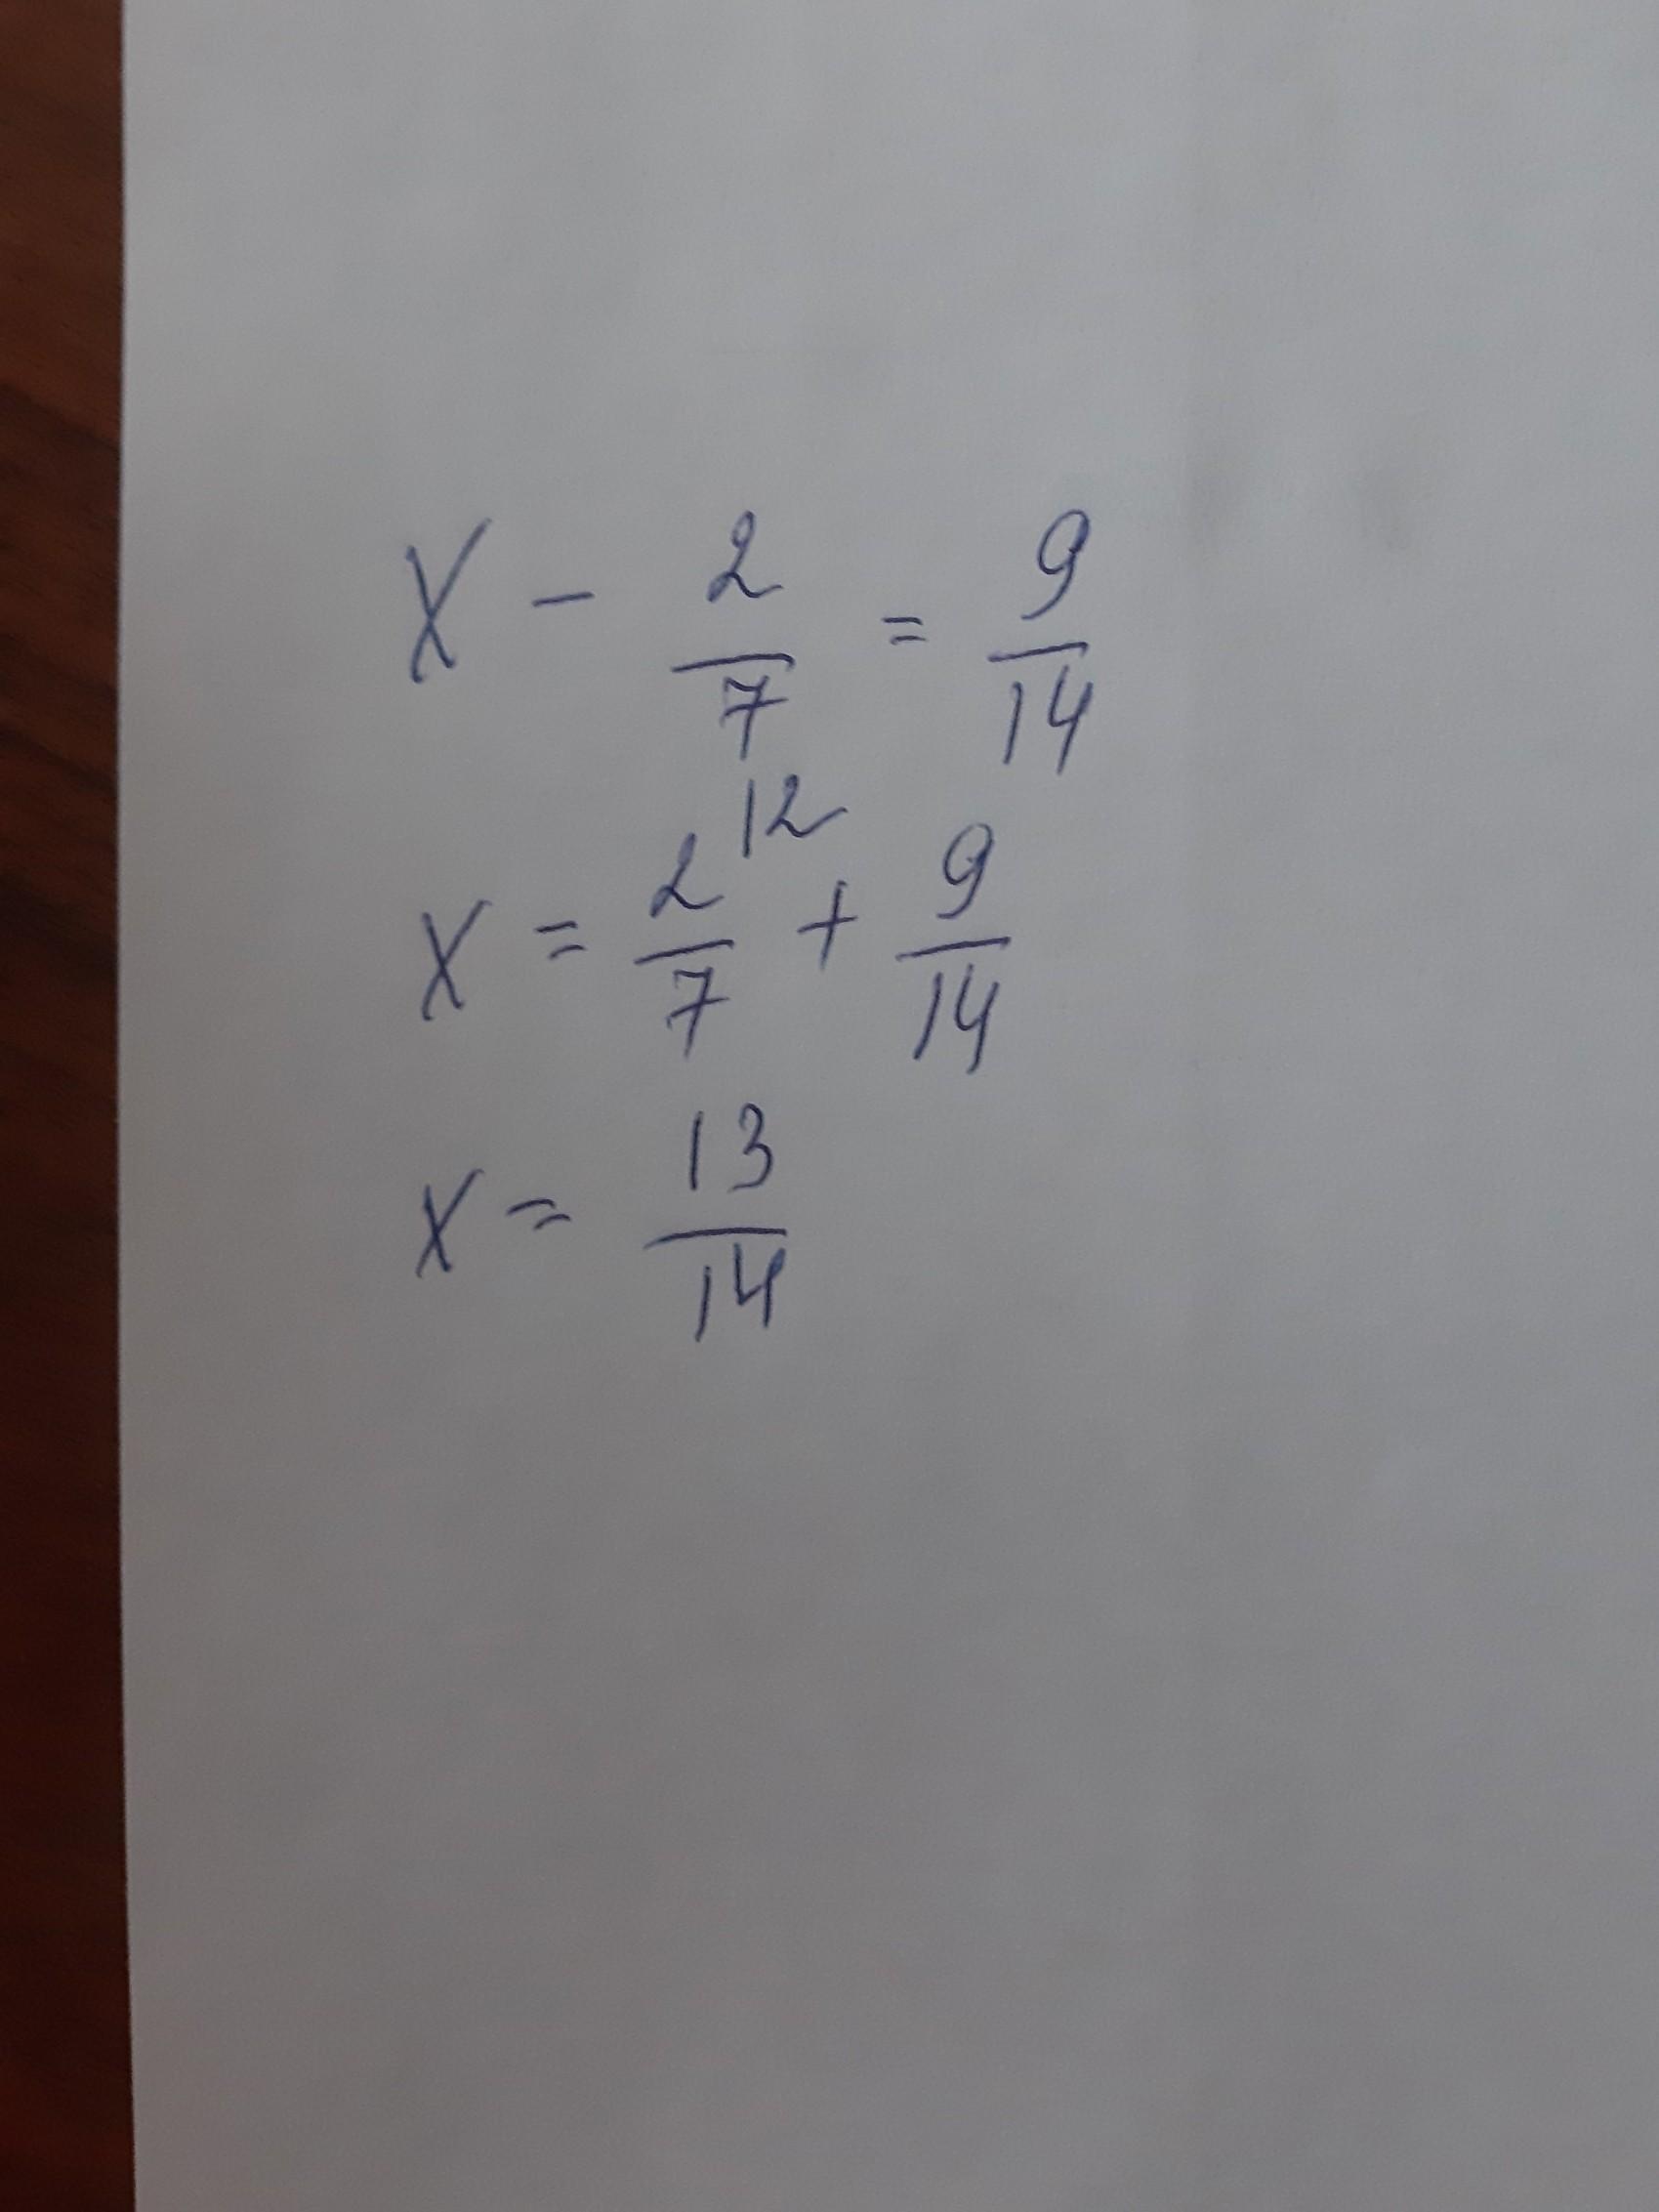 x - 2/7 = 9/14
x = 2/7 |2 + 9/14
x = 13/14